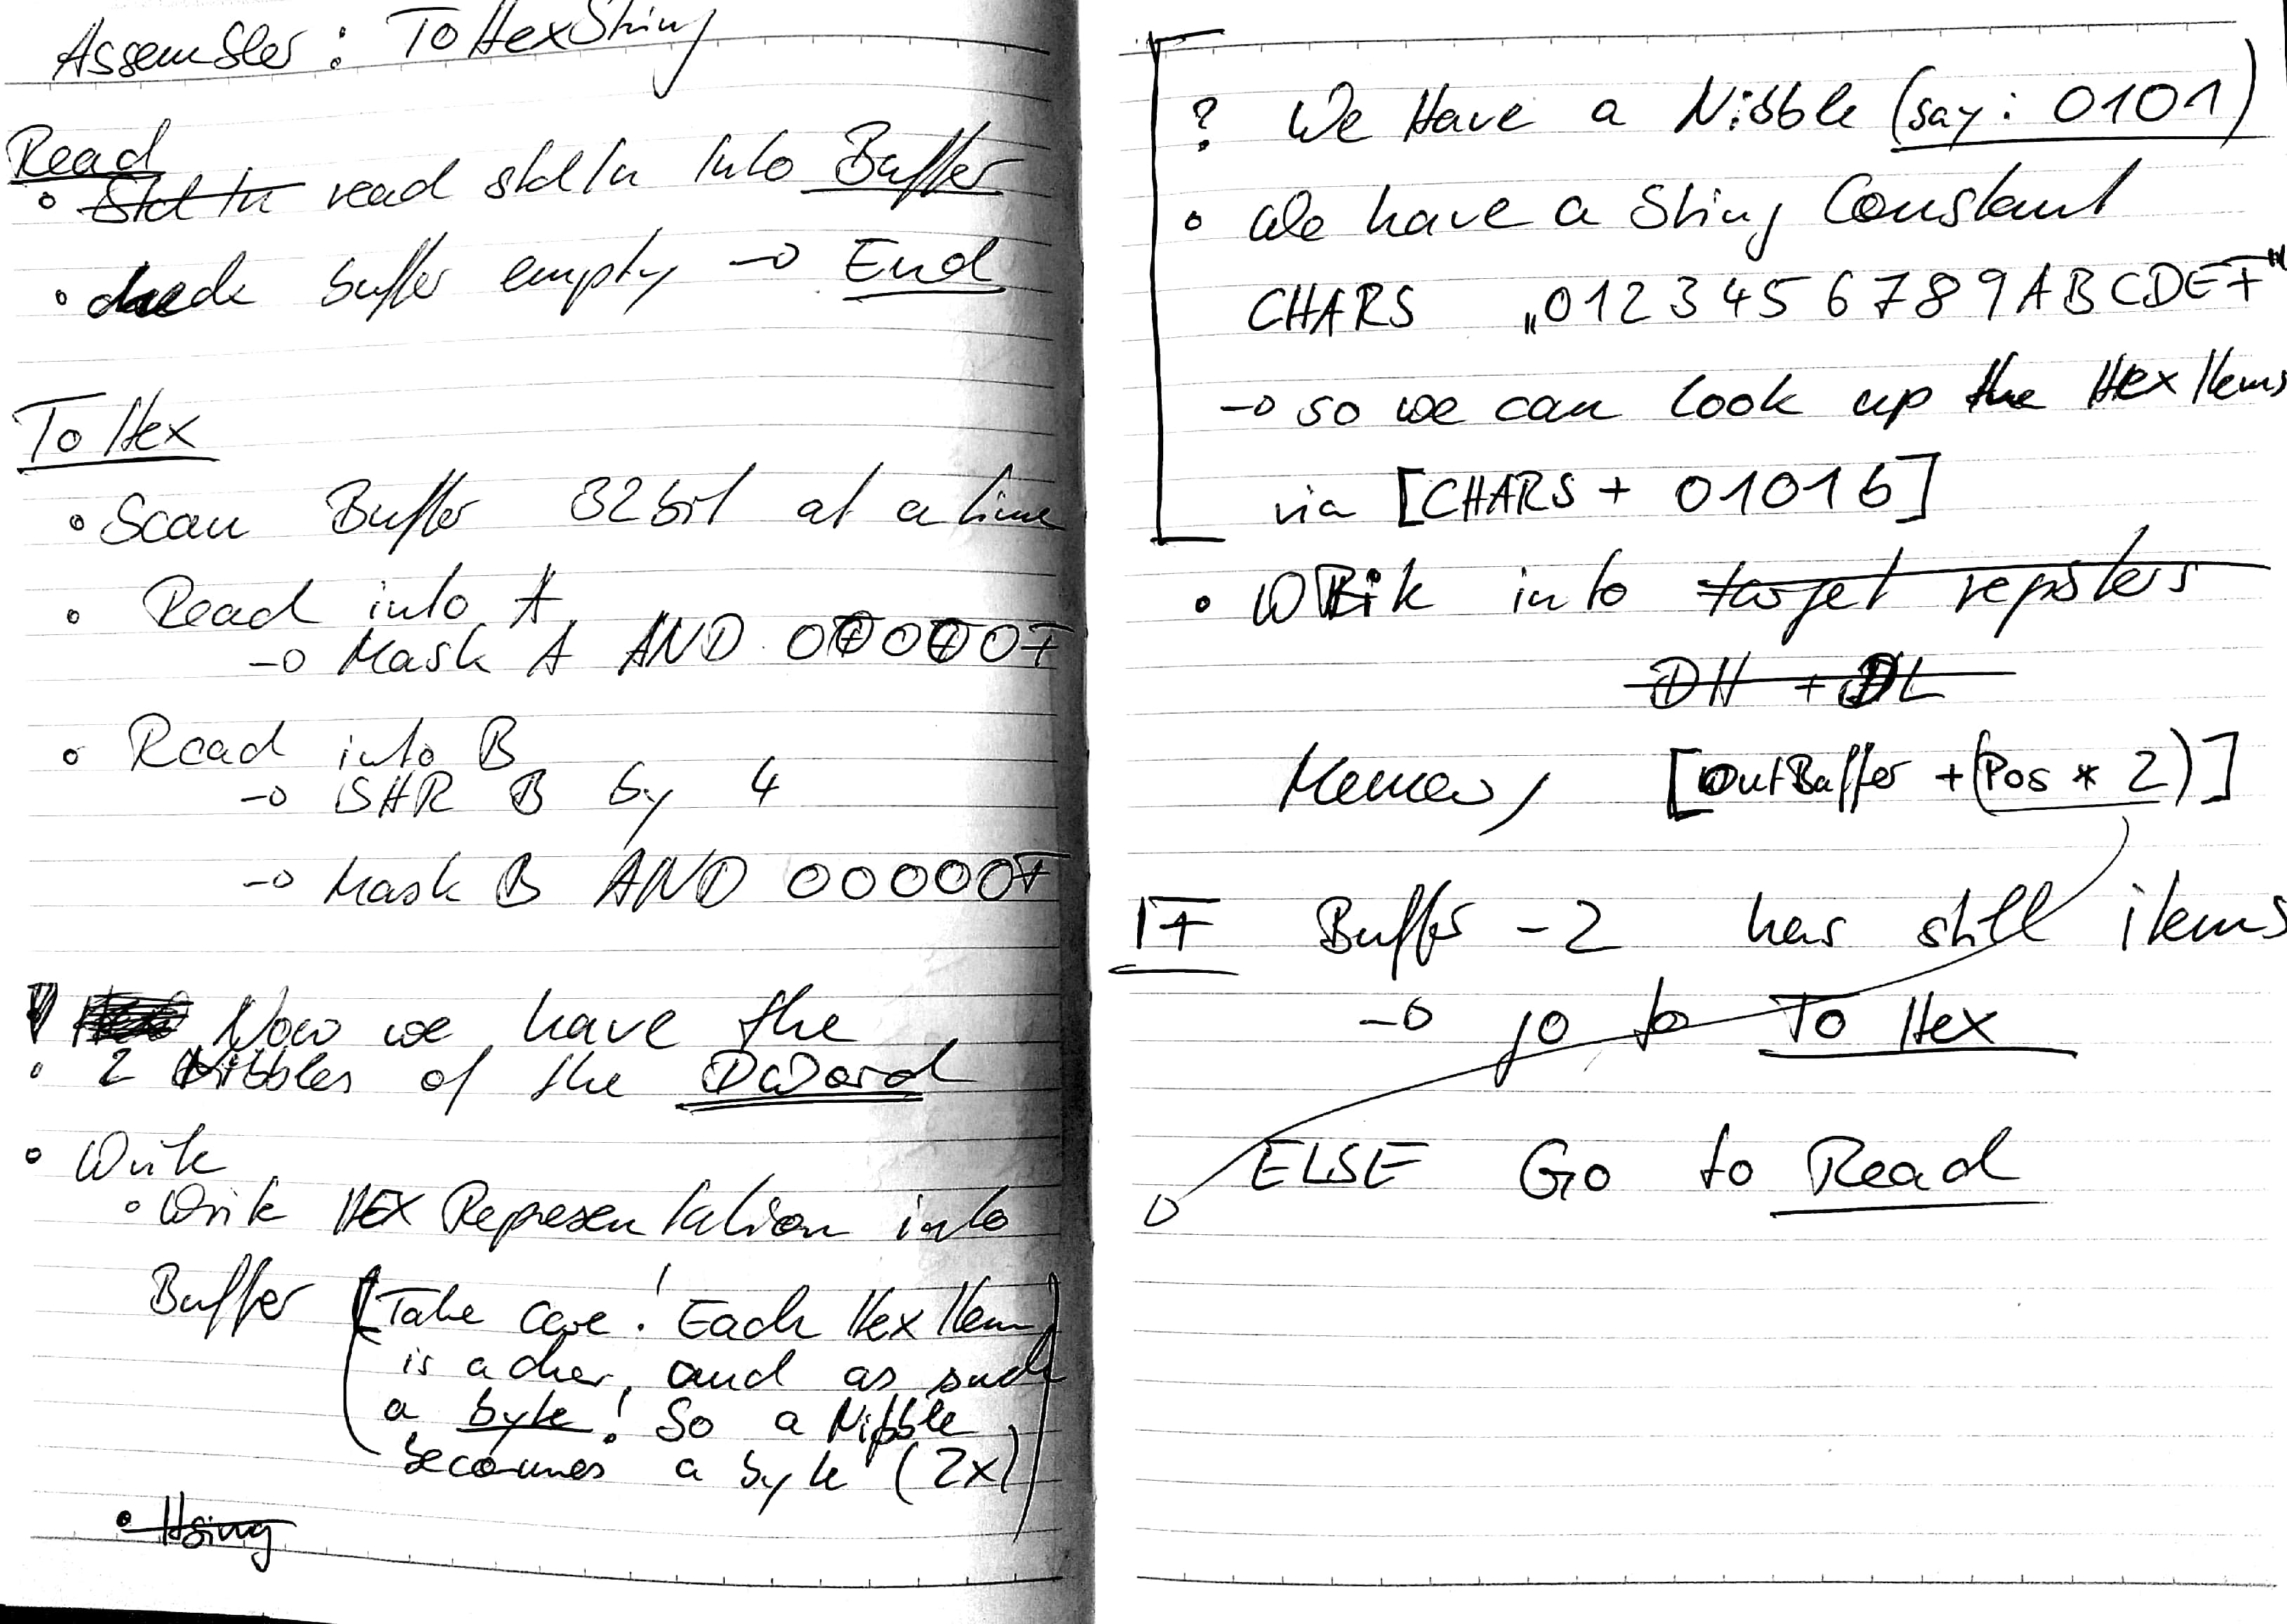 Assembler: To HexString
Read
• Std In read stdIn into Buffer
• check buffer empty → End
To Hex
• Scan Buffer 32bit at a time
• Read into A
→ Mask A AND 00000F
• Read into B
→ SHR B by 4
→ Mask B AND 00000F
! Now we have the
• 2 Nibbles of the DWord
• Write
• Write HEX Representation into
Buffer (Take care! Each Hex Item
is a char, and as such
a byte! So a Nibble
becomes a byte (2x))
• Using
? We Have a Nibble (say: 0101)
• We have a String Constant
CHARS „0123456789ABCDEF"
→ so we can look up the Hex Items
via [CHARS + 0101b]
• Write into target registers
DH + DL
Memory [outBuffer + (Pos * 2)]
IF Buffer - 2 has still items
→ go to To Hex
ELSE Go to Read